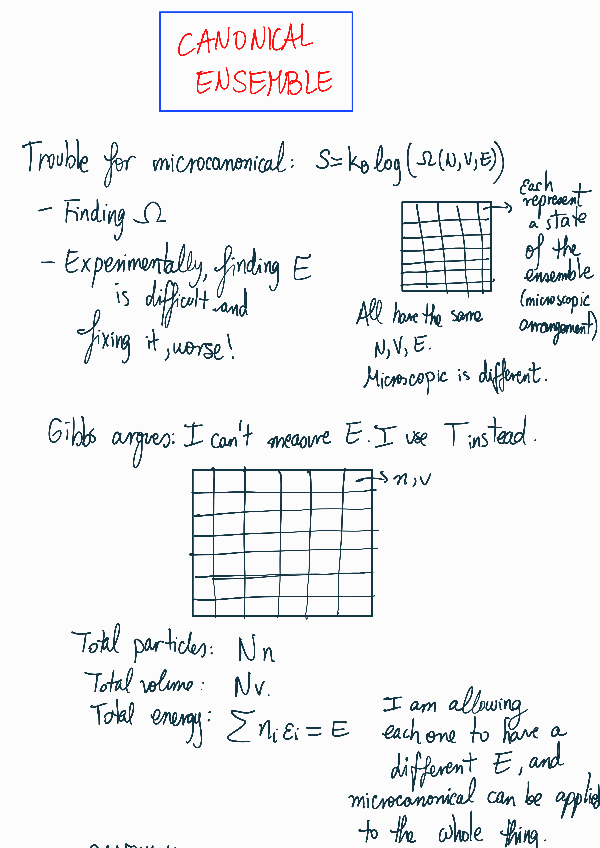 CANONICAL
ENSEMBLE
Trouble for microcanonical: S=kB log(Ω(N,V,E))
- Finding Ω
- Experimentally, finding E
is difficult and
fixing it, worse!
Each
represent
a state
of the
ensemble
(microscopic
arrangement)
All have the same
N, V, E.
Microscopic is different.
Gibbs argues: I can't measure E. I use T instead.
n, v
Total particles: Nn
Total volume: Nv.
Total energy: ∑ niεi = E
I am allowing
each one to have a
different E, and
microcanonical can be applied
to the whole thing.